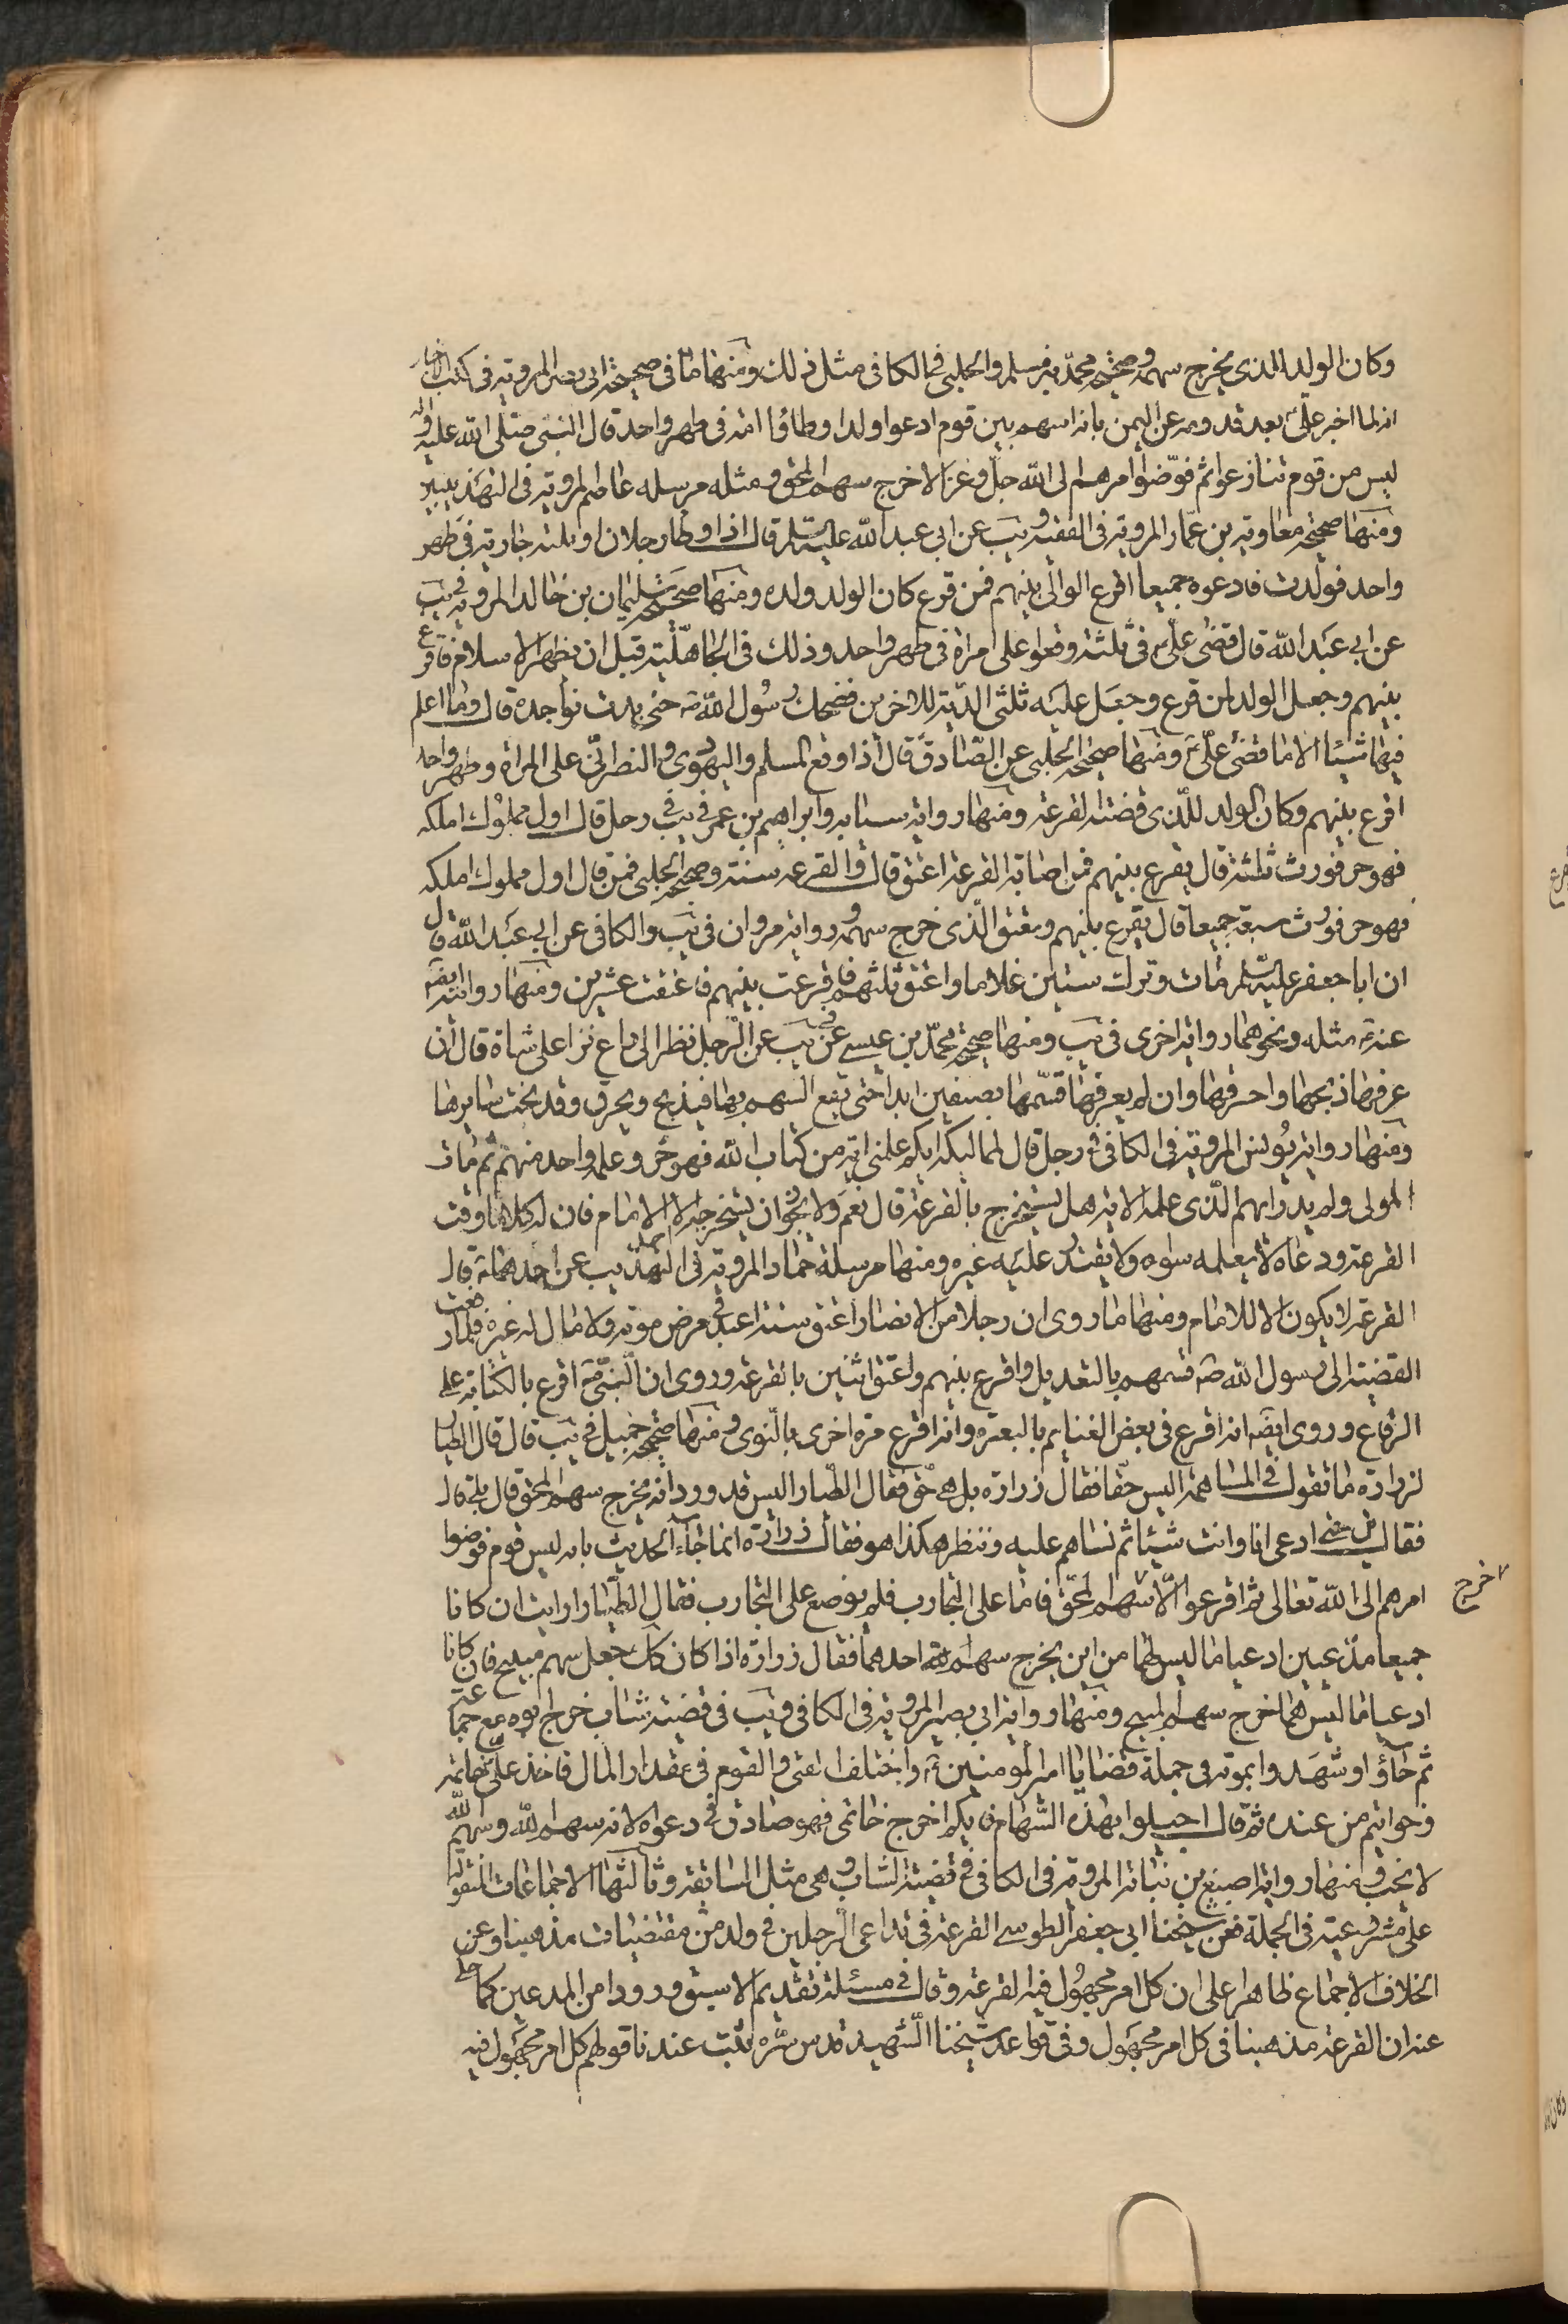 وكان الولد الذى يخرج سهمه وصحيحة محمد بن مسلم والحلبى فى الكافى مثل ذلك ومنها ما فى صحيحة ابى بصير المروية فى كتب الاخبار
انه لما اخبر على بعد قدومه عن اليمن بانه اسهم بين قوم ادعوا ولدا وطاؤا امة فى طهر واحد قال النبى صلى الله عليه واله
ليس من قوم تنازعوا ثم فوّضوا امرهم الى الله جل وعز الا خرج سهم المحق ومثله مرسله عاصم المروية فى التهذيبين
ومنها صحيحة معاوية بن عمار المروية فى الفقيه ويب عن ابى عبد الله عليه السلم قال اذا وطا رجلان او ثلثة جارية فى طهر
واحد فولدت فادعوه جميعا اقرع الوالى بينهم فمن قرع كان الولد ولده ومنها صحيحة سليمان بن خالد المروية فى يب
عن ابى عبد الله قال قضى على ع فى ثلثة وقعوا على امراة فى طهر واحد وذلك فى الجاهلية قبل ان يظهر الاسلام فاقرع
بينهم وجعل الولد لمن قرع وجعل عليه ثلثى الدية للاخرين فضحك رسول الله ص حتى بدت نواجده قال وما اعلم
فيها شيئا الا ما قضى على ع ومنها صحيحة الحلبى عن الصادق قال اذا وقع المسلم واليهودى والنصرانى على المراة فى طهر واحد
اقرع بينهم وكان الولد للذى قضته القرعة ومنها رواية سيابه وابراهيم بن عمر فى يب فى رجل قال اول مملوك املكه
فهو حر فورث ثلثة قال يقرع بينهم فمن اصابته القرعة اعتق قال والقرعة سنة وصحيحة الحلبى فمن قال اول مملوك املكه
فهو حر فورث سبعة جميعا قال يقرع بينهم ويعتق الذى خرج سهمه ورواية مروان فى يب والكافى عن ابى عبد الله قال
ان ابا جعفر عليه السلم مات وترك ستين غلاما واعتق ثلثهم فاقرعت بينهم فاعتقت عشرين ومنها رواية ايضا
عنه ع مثله ونحوهما رواية اخرى فى يب ومنها صحيحة محمد بن عيسى فى يب عن الرجل نظر الى راع نزا على شاة قال ان
عرفها ذبحها واحرقها وان لم يعرفها قسمها بصنفين ابدا حتى يقع السهم بها فيذبح ويحرق وقد نجت سايرها
ومنها رواية يونس المروية فى الكافى فى رجل قال لمماليكه ايكم علمنى اية من كتاب الله فهو حر وعلمه واحد منهم ثم مات
المولى ولم يدر ايهم الذى علمه الاية هل يستخرج بالقرعة قال نعم ولا يجوز ان يستخرجه الا الامام فان له كلاما وقت
القرعة ودعاء لا يعلمه سواه ولا يقتدر عليه غيره ومنها مرسلة حماد المروية فى التهذيب عن احدهما ع قال
القرعة لا يكون الا للامام ومنها ما روى ان رجلا من الانصار اعتق ستة اعبد فى مرض موته ولا مال له غيره فلما رفعت
القضية الى رسول الله ص قسمهم بالتعديل واقرع بينهم واعتق اثنين بالقرعة وروى ان النبى ص اقرع بالكتابة على
الرقاع وروى ايضا انه اقرع فى بعض الغنايم بالبعرة وانه اقرع مرة اخرى بالنوى ومنها صحيحة جميل فى يب قال قال الطيار
لزرارة ما تقول فى المساهمة اليس حقا فقال زرارة بل هى حق فقال الطيار اليس قد ورد انه يخرج سهم المحق قال بلى قال
فقال حتى ادعى انا وانت شيئا ثم نساهم عليه وننظر هكذا هو فقال زرارة انما جاء الحديث بانه ليس قوم فوضوا
امرهم الى الله تعالى ثم اقرعوا الا سهم المحق فاما على التجارب فلم يوضع على التجارب فقال الطيار ارايت ان كانا
اخرج
جميعا مدعيين ادعيا ما ليس لهما من اين يخرج سهم احدهما فقال زرارة اذا كان كك جعل سهم مبيح فان كانا
ادعيا ما ليس لهما خرج سهم المبيح ومنها رواية ابى بصير المروية فى الكافى ويب فى قضية شاب خرج ابوه مع جماعة
ثم جاؤا وشهدوا بموته فى جملة قضايا امير المومنين ع واختلف الفتى والقوم فى مقدار المال فاخذ على ع خاتمه
وخواتيم من عنده ثم قال اجيلوا بهذه السهام فايكم اخرج خاتمى فهو صادق فى دعواه لانه سهم الله وسهم الله
لا يخيب ومنها رواية اصبغ بن نباتة المروية فى الكافى فى قضية الشاب وهى مثل السابقة وثالثها الاجماعات المنقولة
على مشروعيته فى الجملة فعن شيخنا ابى جعفر الطوسى القرعة فى تداعى الرجلين فى ولد من مقتضيات مذهبنا وعن
الخلاف الاجماع ظاهرا على ان كل امر مجهول فيه القرعة وقال فى مسئلة تقديم الاسبق ورودا من المدعين كما حكى
عنه ان القرعة مذهبنا فى كل امر مجهول وفى قواعد شيخنا الشهيد قدس سره ثبت عندنا قولهم كل امر مجهول فيه